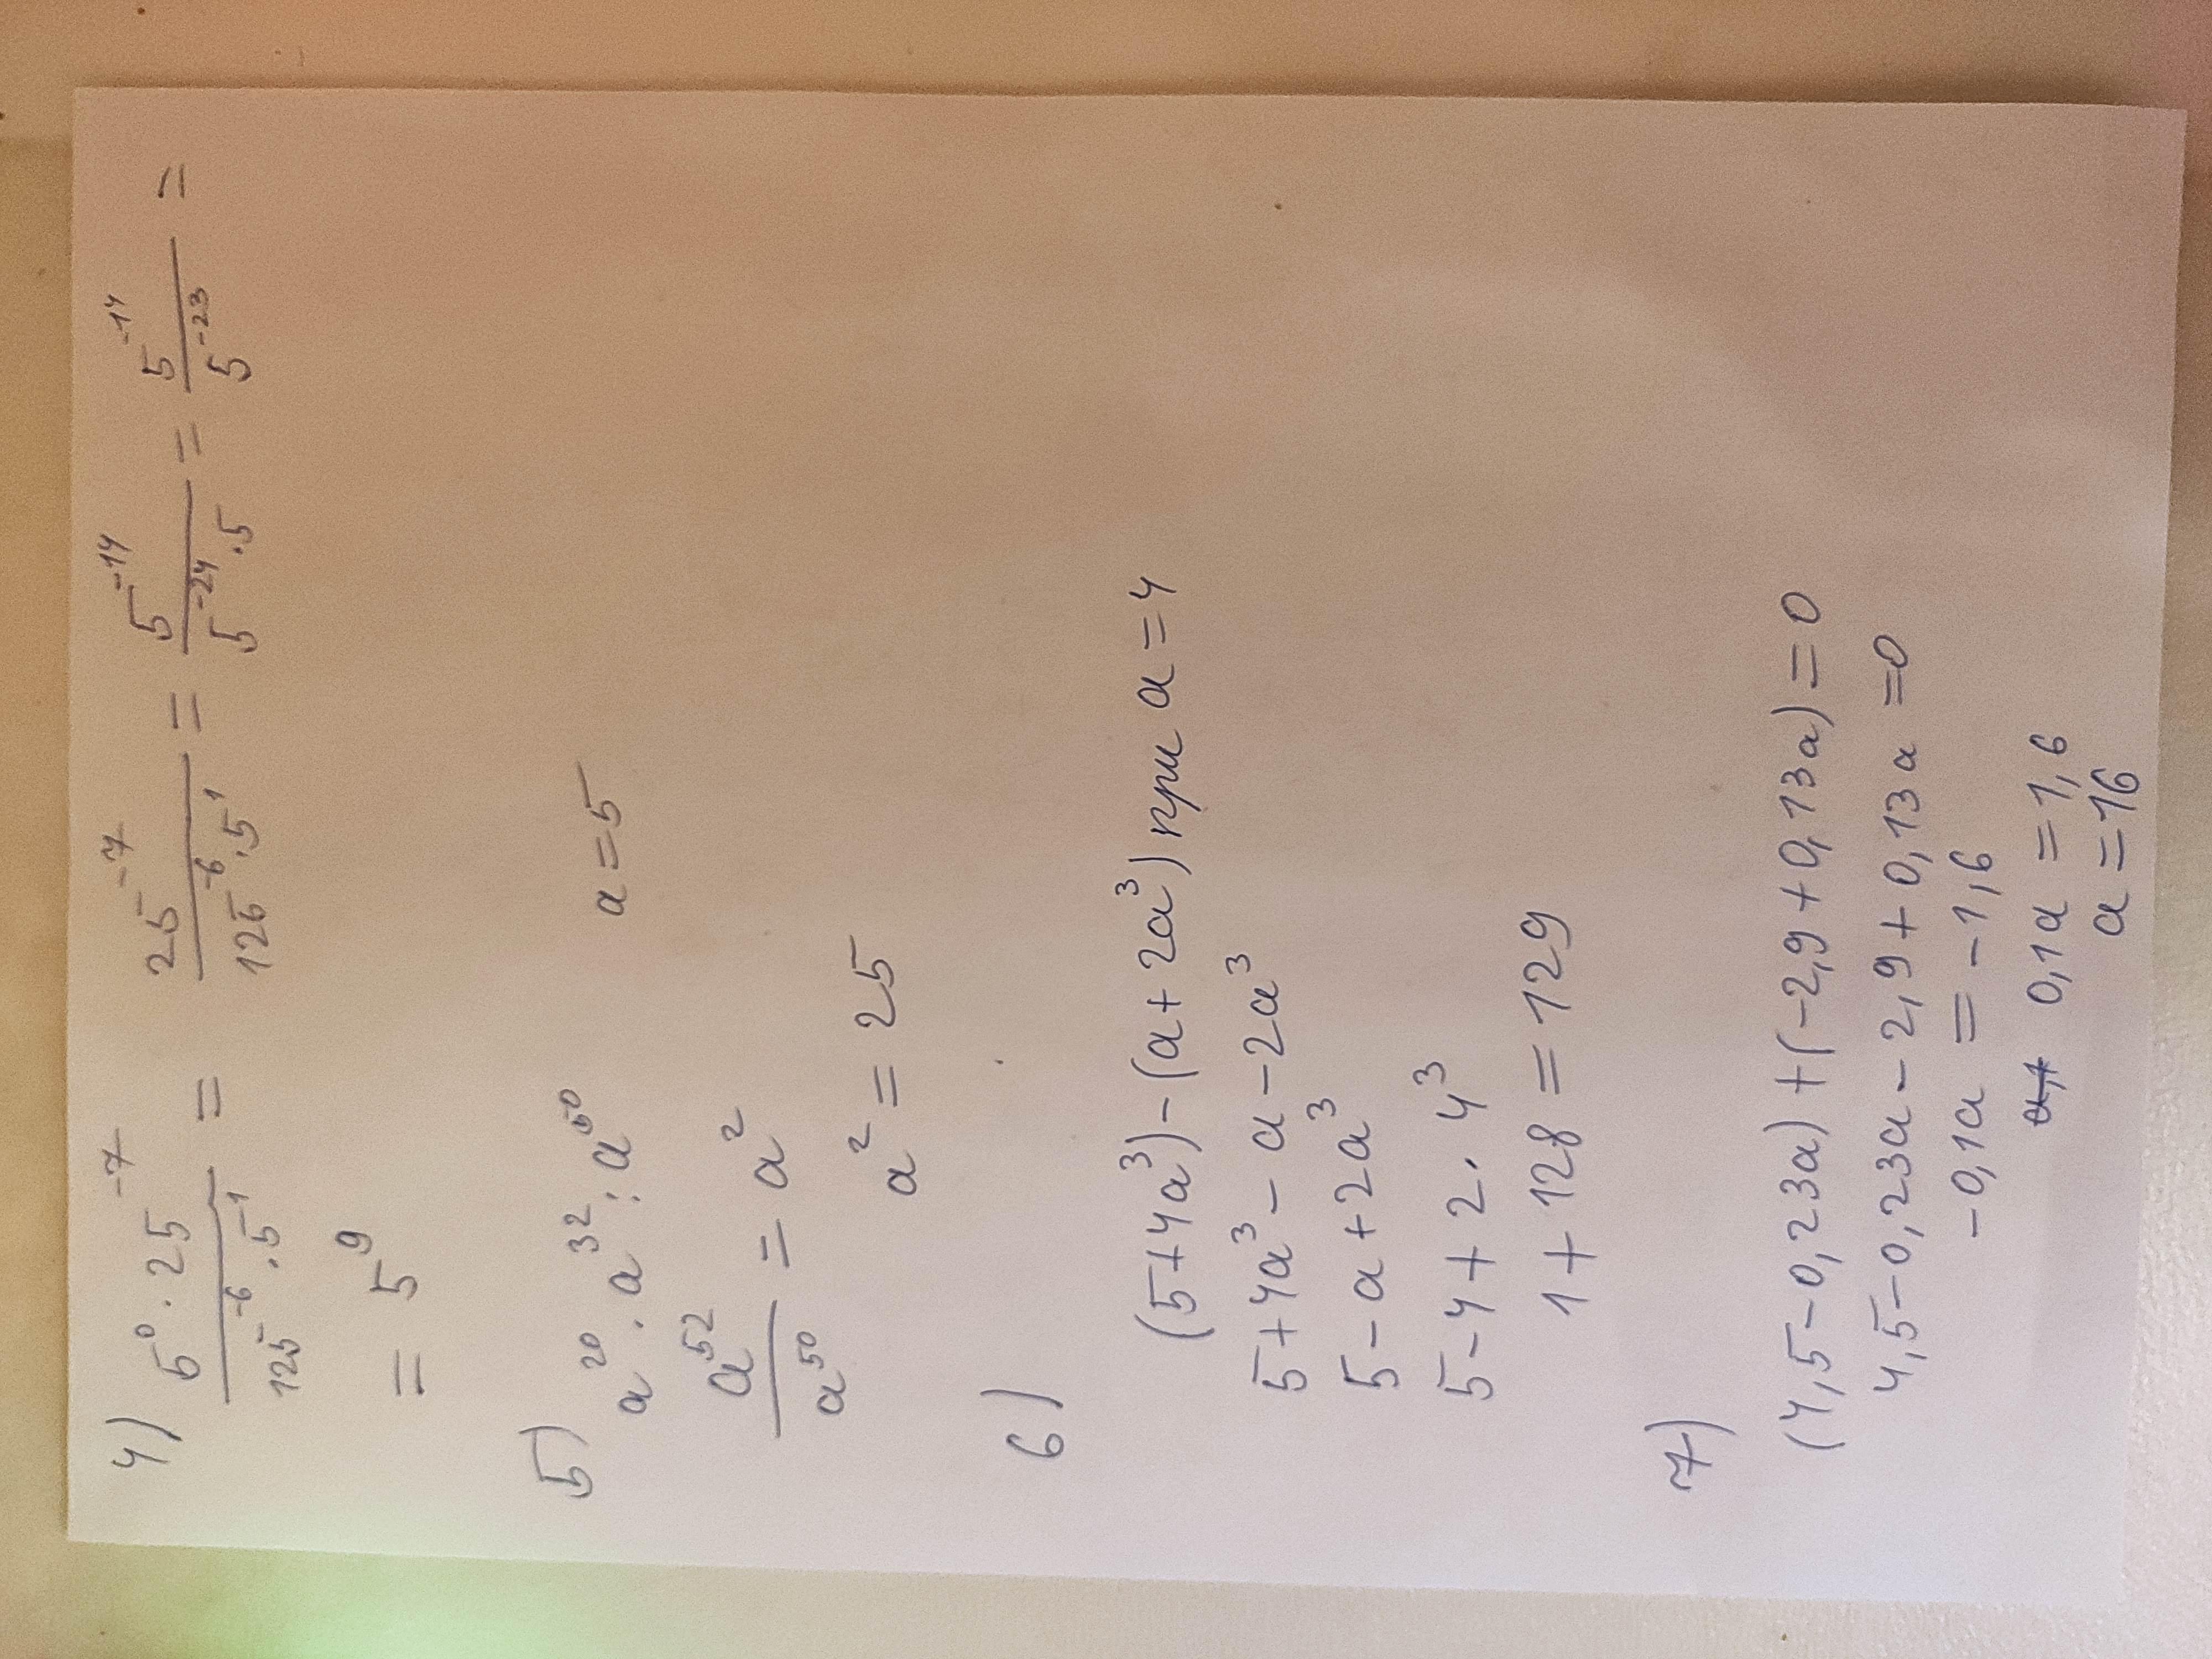 4) 5⁰ · 25⁻⁷ / 125⁻⁶ · 5¹ = 25⁻⁷ / 125⁻⁶ · 5¹ = 5⁻¹⁴ / 5⁻²⁴ · 5 = 5⁻¹⁴ / 5⁻²³ =
= 5⁹
5) a²⁰ · a³² : a⁵⁰ a = 5
a⁵² / a⁵⁰ = a²
a² = 25
6) (5+4a³) - (a+2a³) при a = 4
5+4a³ - a - 2a³
5 - a + 2a³
5 - 4 + 2 · 4³
1 + 128 = 129
7)
(4,5 - 0,23a) + (-2,9 + 0,13a) = 0
4,5 - 0,23a - 2,9 + 0,13a = 0
-0,1a = -1,6
0,1a = 1,6
a = 16